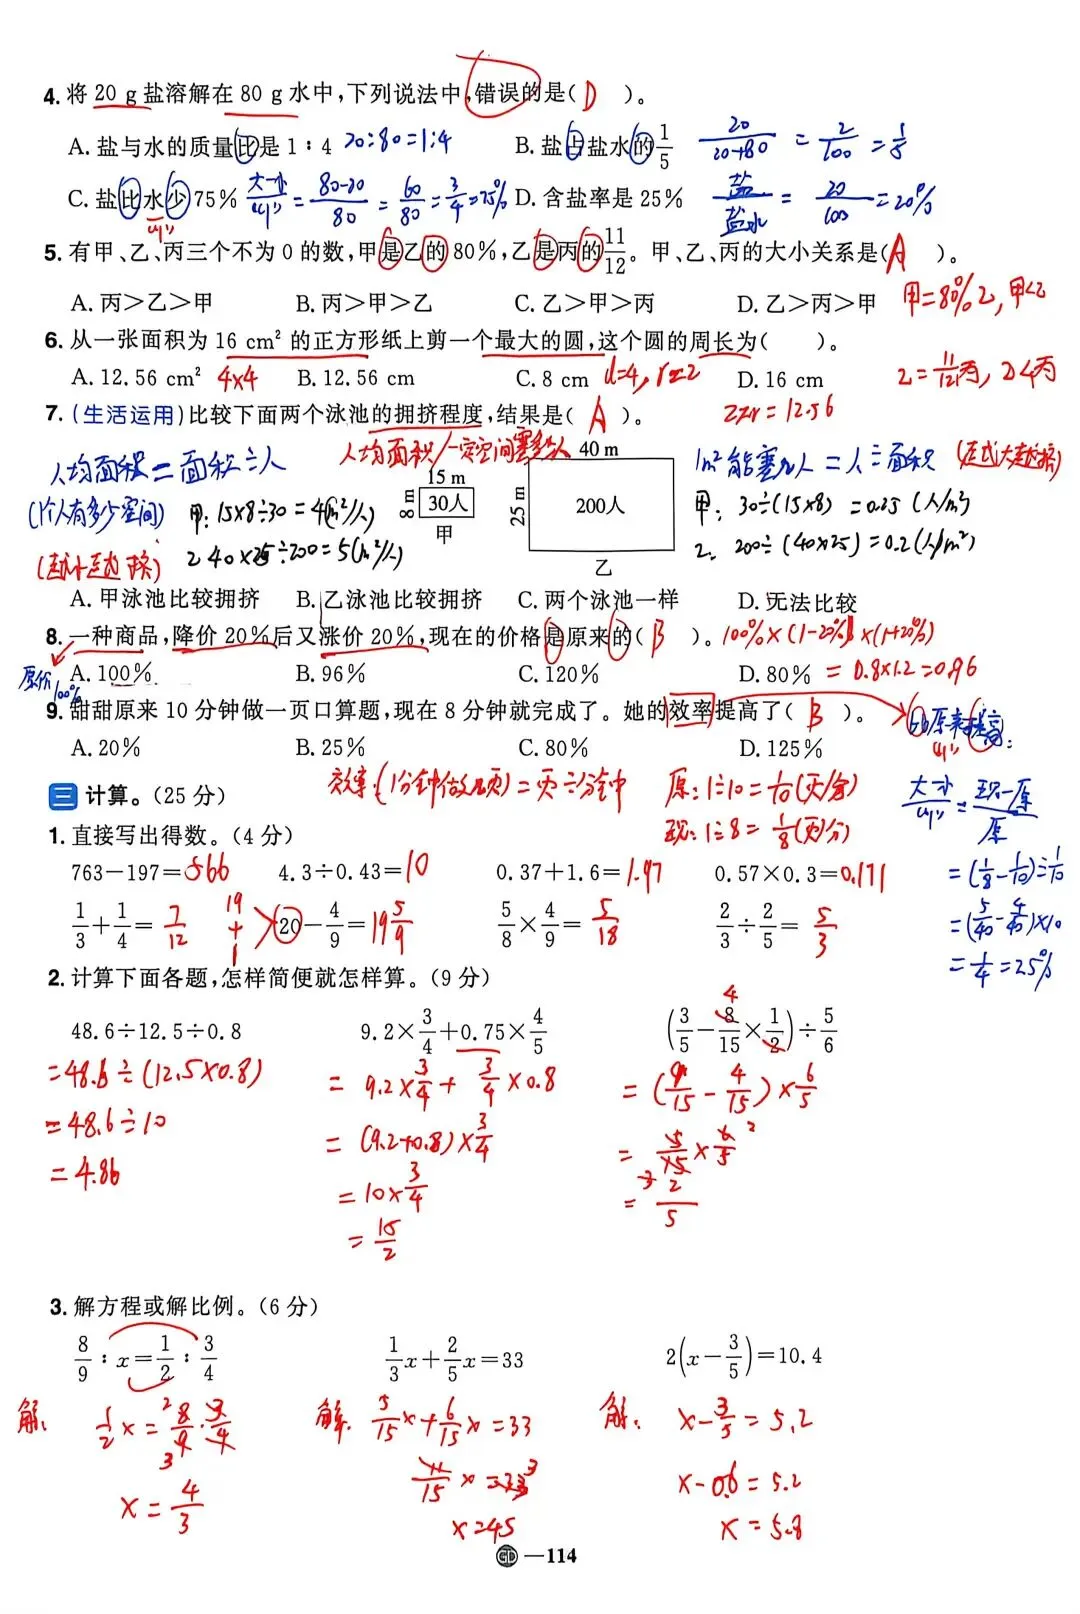 4. 将 20 g 盐溶解在 80 g 水中,下列说法中,错误的是( D )。
A. 盐与水的质量比是 1∶4 20:80=1:4 B. 盐占盐水的1/5 20/(20+80) = 2/100 = 1/5
C. 盐比水少 75% (大-小)/"1" = (80-20)/80 = 60/80 = 3/4 = 75% D. 含盐率是 25% 盐/盐水 = 20/100 = 20%
5. 有甲、乙、丙三个不为 0 的数,甲是乙的 80%,乙是丙的11/12。甲、乙、丙的大小关系是( A )。
A. 丙>乙>甲 B. 丙>甲>乙 C. 乙>甲>丙 D. 乙>丙>甲 甲=80%乙,甲<乙
6. 从一张面积为 16 cm² 的正方形纸上剪一个最大的圆,这个圆的周长为( )。
A. 12.56 cm² 4×4 B. 12.56 cm C. 8 cm d=4,r=2 D. 16 cm 乙=11/12丙,乙<丙
2πr=12.56
7. (生活运用)比较下面两个泳池的拥挤程度,结果是( A )。
人均面积/一定空间
人均面积=面积÷人
(1个人有多少空间)
(越小越挤)
甲:15×8÷30=4(m²/人)
乙 40×25÷200=5(m²/人)
15 m
8 m
30人
甲
40 m
25 m
200人
乙
1m²能塞几人=人÷面积 (越大越挤)
甲:30÷(15×8)=0.25(人/m²)
乙:200÷(40×25)=0.2(人/m²)
A. 甲泳池比较拥挤 B. 乙泳池比较拥挤 C. 两个泳池一样 D. 无法比较
8. 一种商品,降价 20%后又涨价 20%,现在的价格是原来的( B )。 100%×(1-20%)×(1+20%)
原价100%
A. 100% B. 96% C. 120% D. 80% =0.8×1.2=0.96
9. 甜甜原来 10 分钟做一页口算题,现在 8 分钟就完成了。她的效率提高了( B )。
比原来提高:
"1"
A. 20% B. 25% C. 80% D. 125%
效率:(1分钟做几页)=页÷分钟 原:1÷10=1/10(页/分)
现:1÷8=1/8(页/分)
(大-小)/"1" = (现-原)/原
=(1/8-1/10)÷1/10
=(5/40-4/40)×10
=1/4=25%
三 计算。(25 分)
1. 直接写出得数。(4 分)
763-197=566 4.3÷0.43=10 0.37+1.6=1.97 0.57×0.3=0.171
1/3+1/4=7/12 19+1 20-4/9=19 5/9 5/8×4/9=5/18 2/3÷2/5=5/3
2. 计算下面各题,怎样简便就怎样算。(9 分)
48.6÷12.5÷0.8 9.2×3/4+0.75×4/5 (3/5-8/15×1/2)÷5/6
4
=48.6÷(12.5×0.8) =9.2×3/4+3/4×0.8 =(9/15-4/15)×6/5
=48.6÷10 =(9.2+0.8)×3/4 =5/15×6/5
3 2
=4.86 =10×3/4 =2/5
=15/2
3. 解方程或解比例。(6 分)
8/9∶x=1/2∶3/4 1/3x+2/5x=33 2(x-3/5)=10.4
解: 1/2x=8/9·3/4 解: 5/15x+6/15x=33 解: x-3/5=5.2
2 3
x=4/3 11/15x=33 x-0.6=5.2
3
x=45 x=5.8
—114